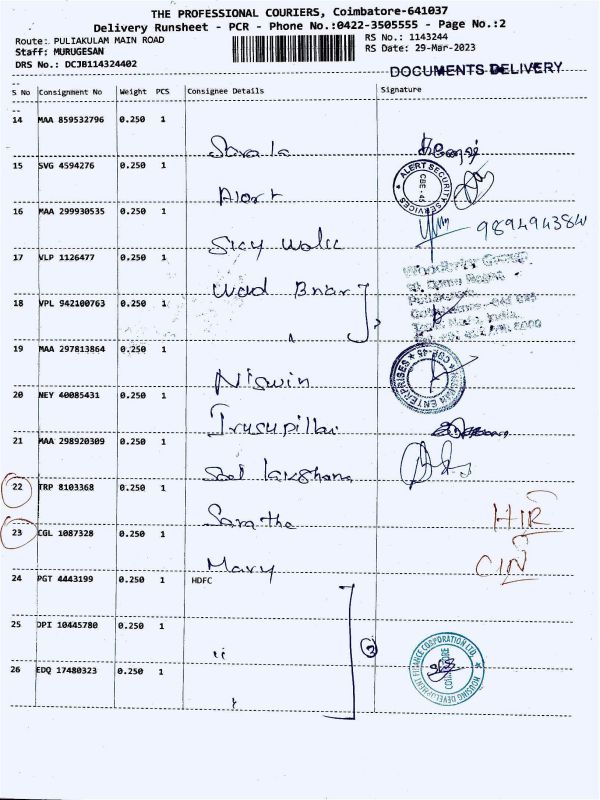 THE PROFESSIONAL COURIERS, Coimbatore-641037
Delivery Runsheet - PCR - Phone No.:0422-3505555 - Page No.:2
Route: PULIAKULAM MAIN ROAD
RS No.: 1143244
Staff: MURUGESAN
RS Date: 29-Mar-2023
DRS No.: DCJB114324402
DOCUMENTS DELIVERY
S No Consignment No Weight PCS Consignee Details Signature
14 MAA 859532796 0.250 1
Sarala
15 SVG 4594276 0.250 1
Alert
ALERT SECURITY SERVICES
CBE - 45
16 MAA 299930535 0.250 1
9894943844
17 VLP 1126477 0.250 1
18 VPL 942100763 0.250 1
19 MAA 297813864 0.250 1
Niswin
ENTERPRISES ★ CBE-45
20 NEY 40085431 0.250 1
21 MAA 298920309 0.250 1
22 TRP 8103368 0.250 1
HIR
23 CGL 1087328 0.250 1
Mary
CIN
24 PGT 4443199 0.250 1 HDFC
25 DPI 10445780 0.250 1
"
3
HOUSING DEVELOPMENT FINANCE CORPORATION LTD.
26 EDQ 17480323 0.250 1